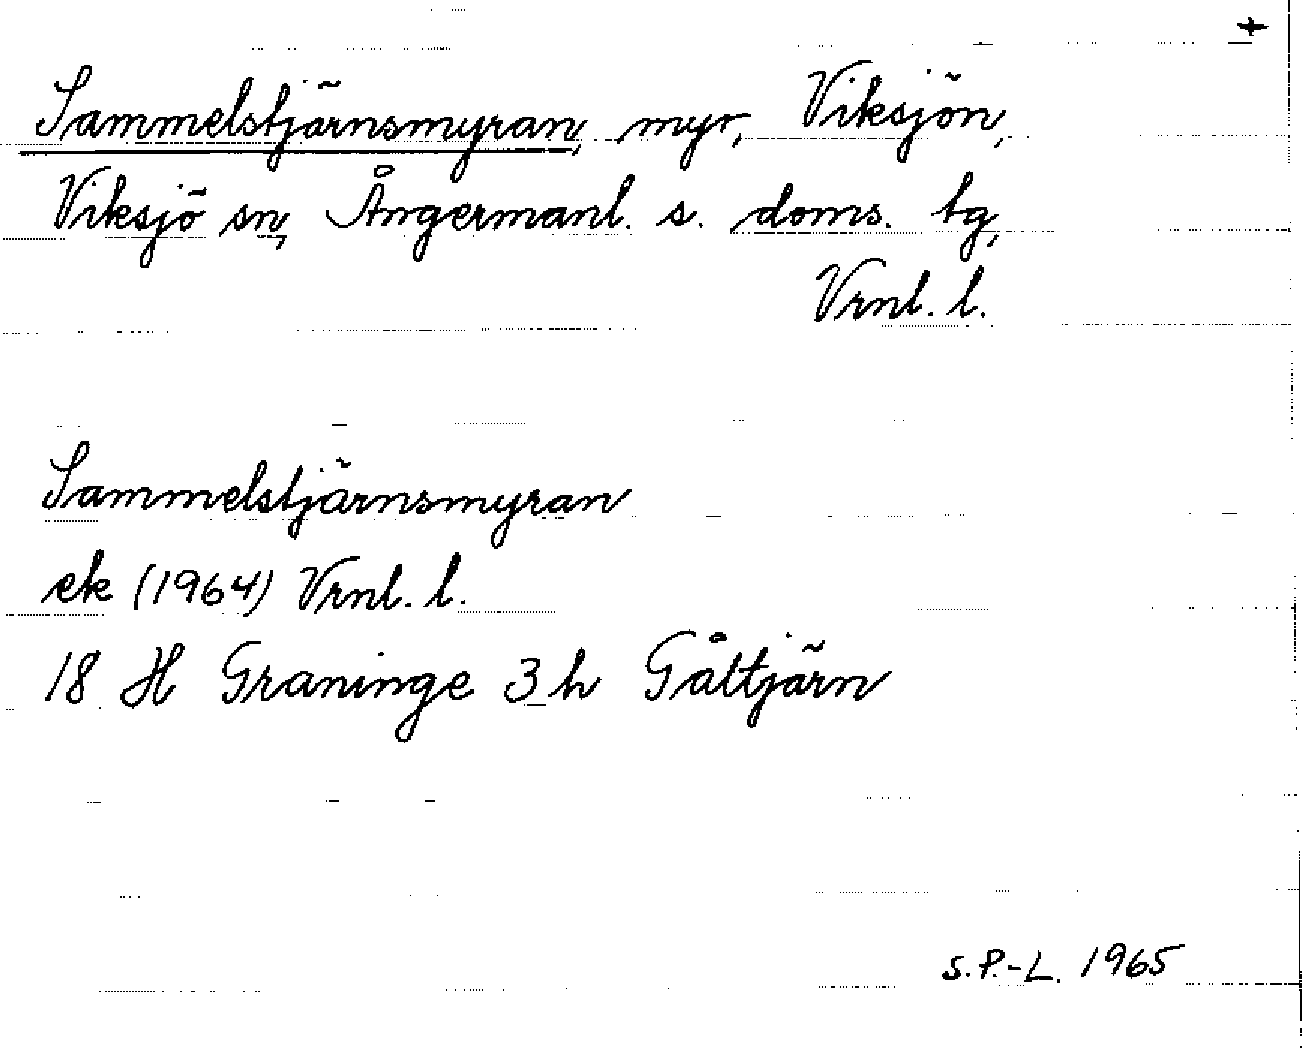 +
Sammelstjärnsmyran, myr, Viksjön,
Viksjö sn, Ångermanl. s. doms. tg,
Vrnl. l.
Sammelstjärnsmyran
ek (1964) Vrnl. l.
18 H Graninge 3 h Gåltjärn
S.P.-L. 1965